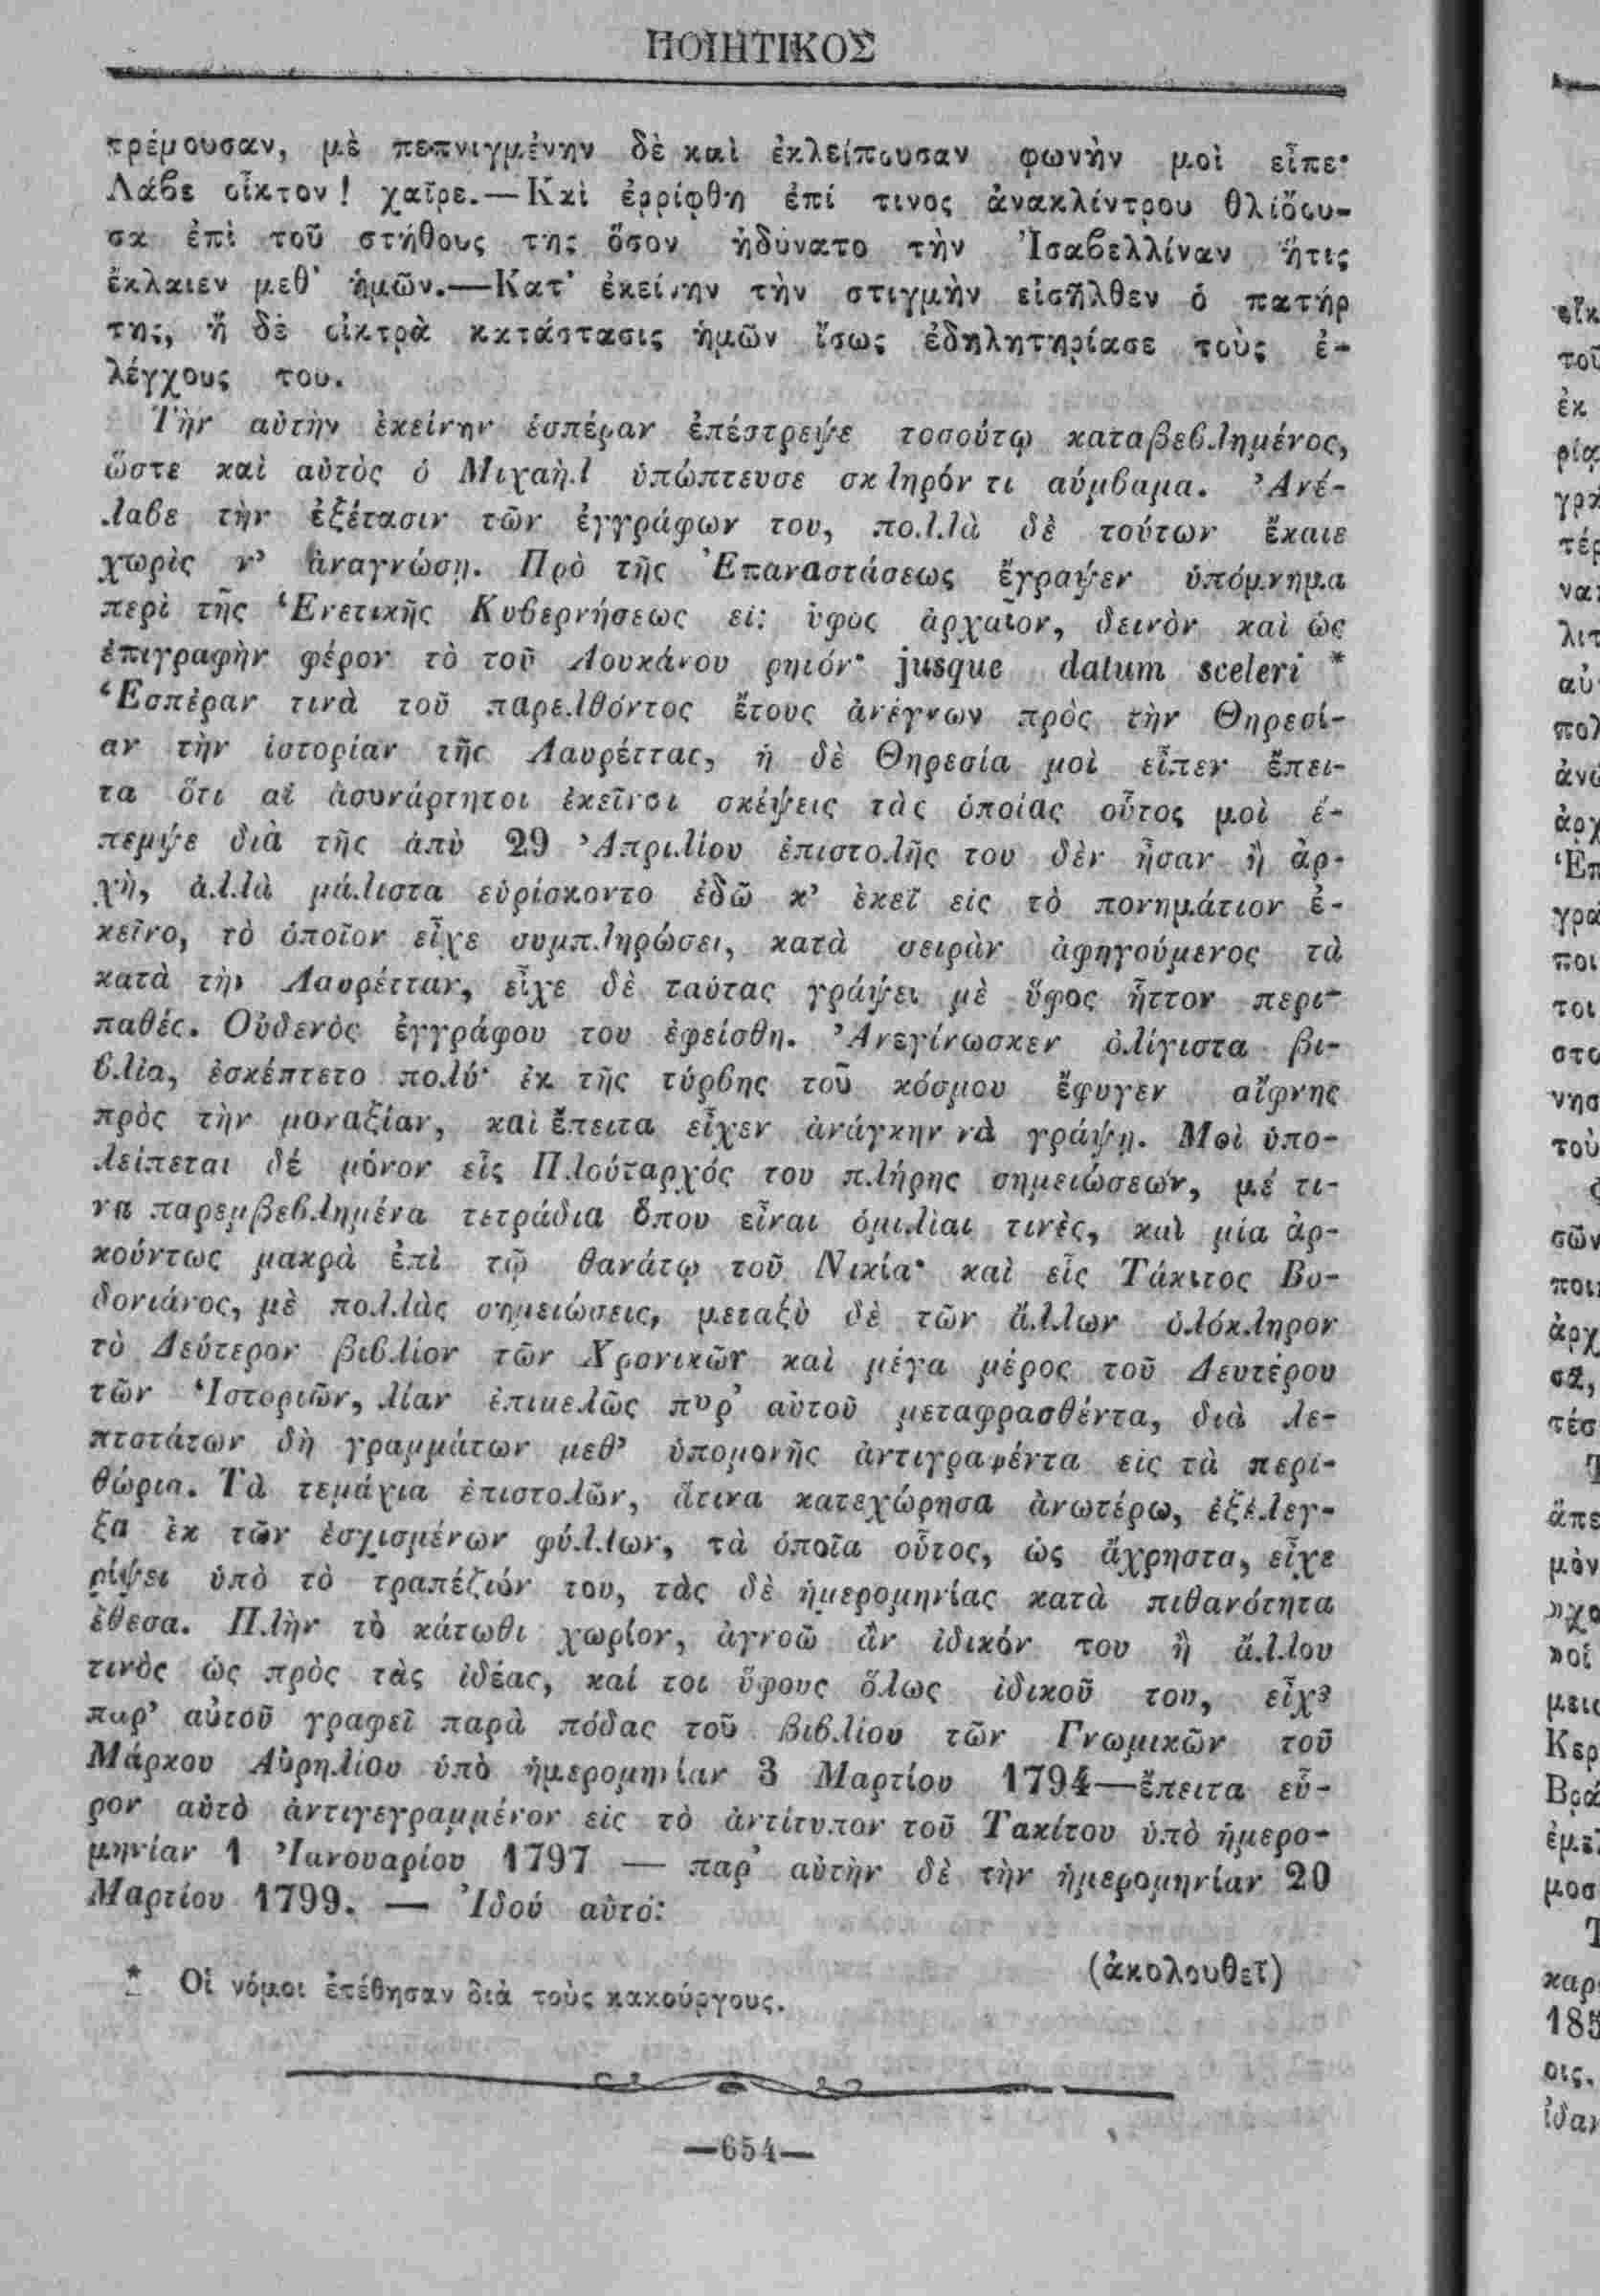 ΠΟΙΗΤΙΚΟΣ
τρέμουσαν, μὲ πεπνιγμένην δὲ καὶ ἐκλείπουσαν φωνὴν μοὶ εἶπε·
Λάβε οἶκτον! χαῖρε.—Καὶ ἐῤῥίφθη ἐπί τινος ἀνακλίντρου θλίβου-
σα ἐπὶ τοῦ στήθους της ὅσον ἠδύνατο τὴν Ἰσαβελλίναν ἥτις
ἔκλαιεν μεθ' ἡμῶν.—Κατ' ἐκείνην τὴν στιγμὴν εἰσῆλθεν ὁ πατήρ
της, ἡ δὲ οἰκτρὰ κατάστασις ἡμῶν ἴσως ἐδηλητηρίασε τοὺς ἐ-
λέγχους του.
Τὴν αὐτὴν ἐκείνην ἑσπέραν ἐπέστρεψε τοσούτῳ καταβεβλημένος,
ὥστε καὶ αὐτὸς ὁ Μιχαὴλ ὑπώπτευσε σκληρόν τι σύμβαμα. Ἀνέ-
λαβε τὴν ἐξέτασιν τῶν ἐγγράφων του, πολλὰ δὲ τούτων ἔκαιε
χωρὶς ν' ἀναγνώσῃ. Πρὸ τῆς Ἐπαναστάσεως ἔγραψεν ὑπόμνημα
περὶ τῆς Ἑνετικῆς Κυβερνήσεως εἰς ὕφος ἀρχαῖον, δεινὸν καὶ ὡς
ἐπιγραφὴν φέρον τὸ τοῦ Λουκάνου ῥητόν· jusque datum sceleri *
Ἑσπέραν τινὰ τοῦ παρελθόντος ἔτους ἀνέγνων πρὸς τὴν Θηρεσί-
αν τὴν ἱστορίαν τῆς Λαυρέττας, ἡ δὲ Θηρεσία μοὶ εἶπεν ἔπει-
τα ὅτι αἱ ἀσυνάρτητοι ἐκεῖνοι σκέψεις τὰς ὁποίας οὗτος μοὶ ἔ-
πεμψε διὰ τῆς ἀπὸ 29 Ἀπριλίου ἐπιστολῆς του δὲν ἦσαν ἡ ἀρ-
χὴ, ἀλλὰ μάλιστα εὑρίσκοντο ἐδῶ κ' ἐκεῖ εἰς τὸ πονημάτιον ἐ-
κεῖνο, τὸ ὁποῖον εἶχε συμπληρώσει, κατὰ σειρὰν ἀφηγούμενος τὰ
κατὰ τὴν Λαυρέτταν, εἶχε δὲ ταύτας γράψει μὲ ὕφος ἧττον περι-
παθές. Οὐδενὸς ἐγγράφου του ἐφείσθη. Ἀνεγίνωσκεν ὀλίγιστα βι-
βλία, ἐσκέπτετο πολύ· ἐκ τῆς τύρβης τοῦ κόσμου ἔφυγεν αἴφνης
πρὸς τὴν μοναξίαν, καὶ ἔπειτα εἶχεν ἀνάγκην νὰ γράψῃ. Μοὶ ὑπο-
λείπεται δέ μόνον εἷς Πλούταρχός του πλήρης σημειώσεων, μέ τι-
να παρεμβεβλημένα τετράδια ὅπου εἶναι ὁμιλίαι τινὲς, καὶ μία ἀρ-
κούντως μακρὰ ἐπὶ τῷ θανάτῳ τοῦ Νικία· καὶ εἷς Τάκιτος Βο-
δονιάνος, μὲ πολλὰς σημειώσεις, μεταξὺ δὲ τῶν ἄλλων ὁλόκληρον
τὸ Δεύτερον βιβλίον τῶν Χρονικῶν καὶ μέγα μέρος τοῦ Δευτέρου
τῶν Ἱστοριῶν, λίαν ἐπιμελῶς παρ' αὐτοῦ μεταφρασθέντα, διὰ λε-
πτοτάτων δὴ γραμμάτων μεθ' ὑπομονῆς ἀντιγραφέντα εἰς τὰ περι-
θώρια. Τὰ τεμάχια ἐπιστολῶν, ἅτινα κατεχώρησα ἀνωτέρω, ἐξέλεγ-
ξα ἐκ τῶν ἐσχισμένων φύλλων, τὰ ὁποῖα οὗτος, ὡς ἄχρηστα, εἶχε
ῥίψει ὑπὸ τὸ τραπέζιόν του, τὰς δὲ ἡμερομηνίας κατὰ πιθανότητα
ἔθεσα. Πλὴν τὸ κάτωθι χωρίον, ἀγνοῶ ἂν ἰδικόν του ἢ ἄλλου
τινὸς ὡς πρὸς τὰς ἰδέας, καί τοι ὕφους ὅλως ἰδικοῦ του, εἶχε
παρ' αὐτοῦ γραφεῖ παρὰ πόδας τοῦ βιβλίου τῶν Γνωμικῶν τοῦ
Μάρκου Αὐρηλίου ὑπὸ ἡμερομηνίαν 3 Μαρτίου 1794—ἔπειτα εὗ-
ρον αὐτὸ ἀντιγεγραμμένον εἰς τὸ ἀντίτυπον τοῦ Τακίτου ὑπὸ ἡμερο-
μηνίαν 1 Ἰανουαρίου 1797 — παρ' αὐτὴν δὲ τὴν ἡμερομηνίαν 20
Μαρτίου 1799. — Ἰδού αὐτό:
(ἀκολουθεῖ)
* Οἱ νόμοι ἐπέθησαν διὰ τοὺς κακούργους.
—654—